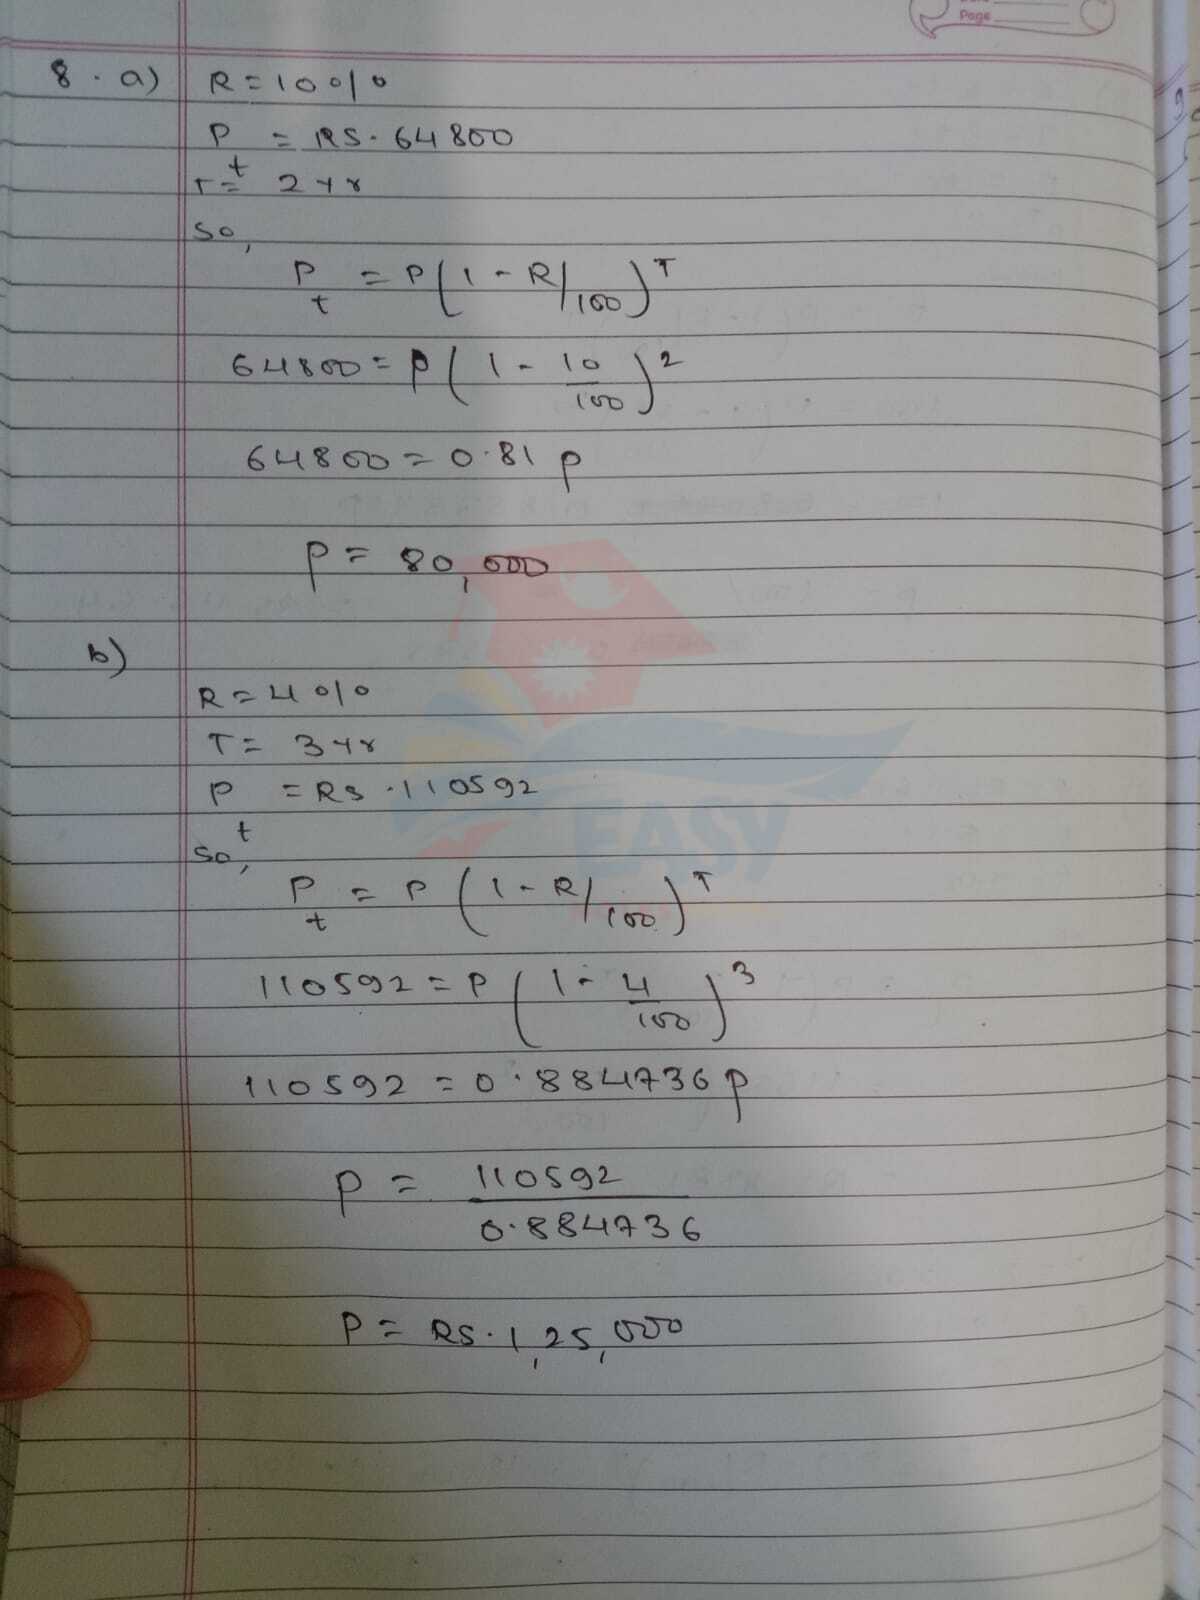 Page
8. a) R = 10%
P_t = RS. 64800
T = 2 yr
so,
P_t = P(1 - R/100)^T
64800 = P(1 - 10/100)^2
64800 = 0.81 P
P = 80,000
b)
R = 4%
T = 3 yr
P_t = Rs. 110592
so,
P_t = P(1 - R/100)^T
110592 = P(1 - 4/100)^3
110592 = 0.884736 P
P = 110592/0.884736
P = RS. 1,25,000
EASY